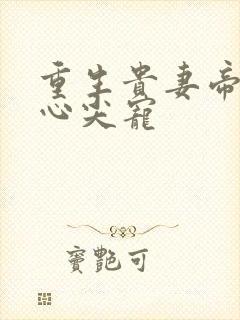 重生貴妻帝
心尖寵
竇艷可